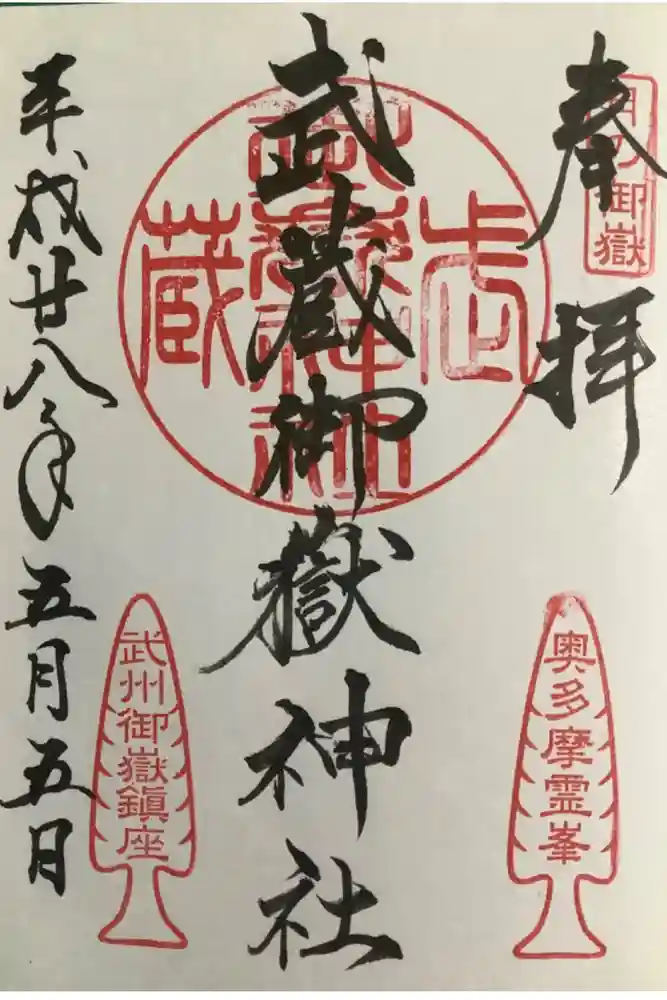 奉拝
日の御嶽
武蔵御嶽神社
武蔵
平成廿八年五月五日
奥多摩霊峯
武州御嶽鎮座